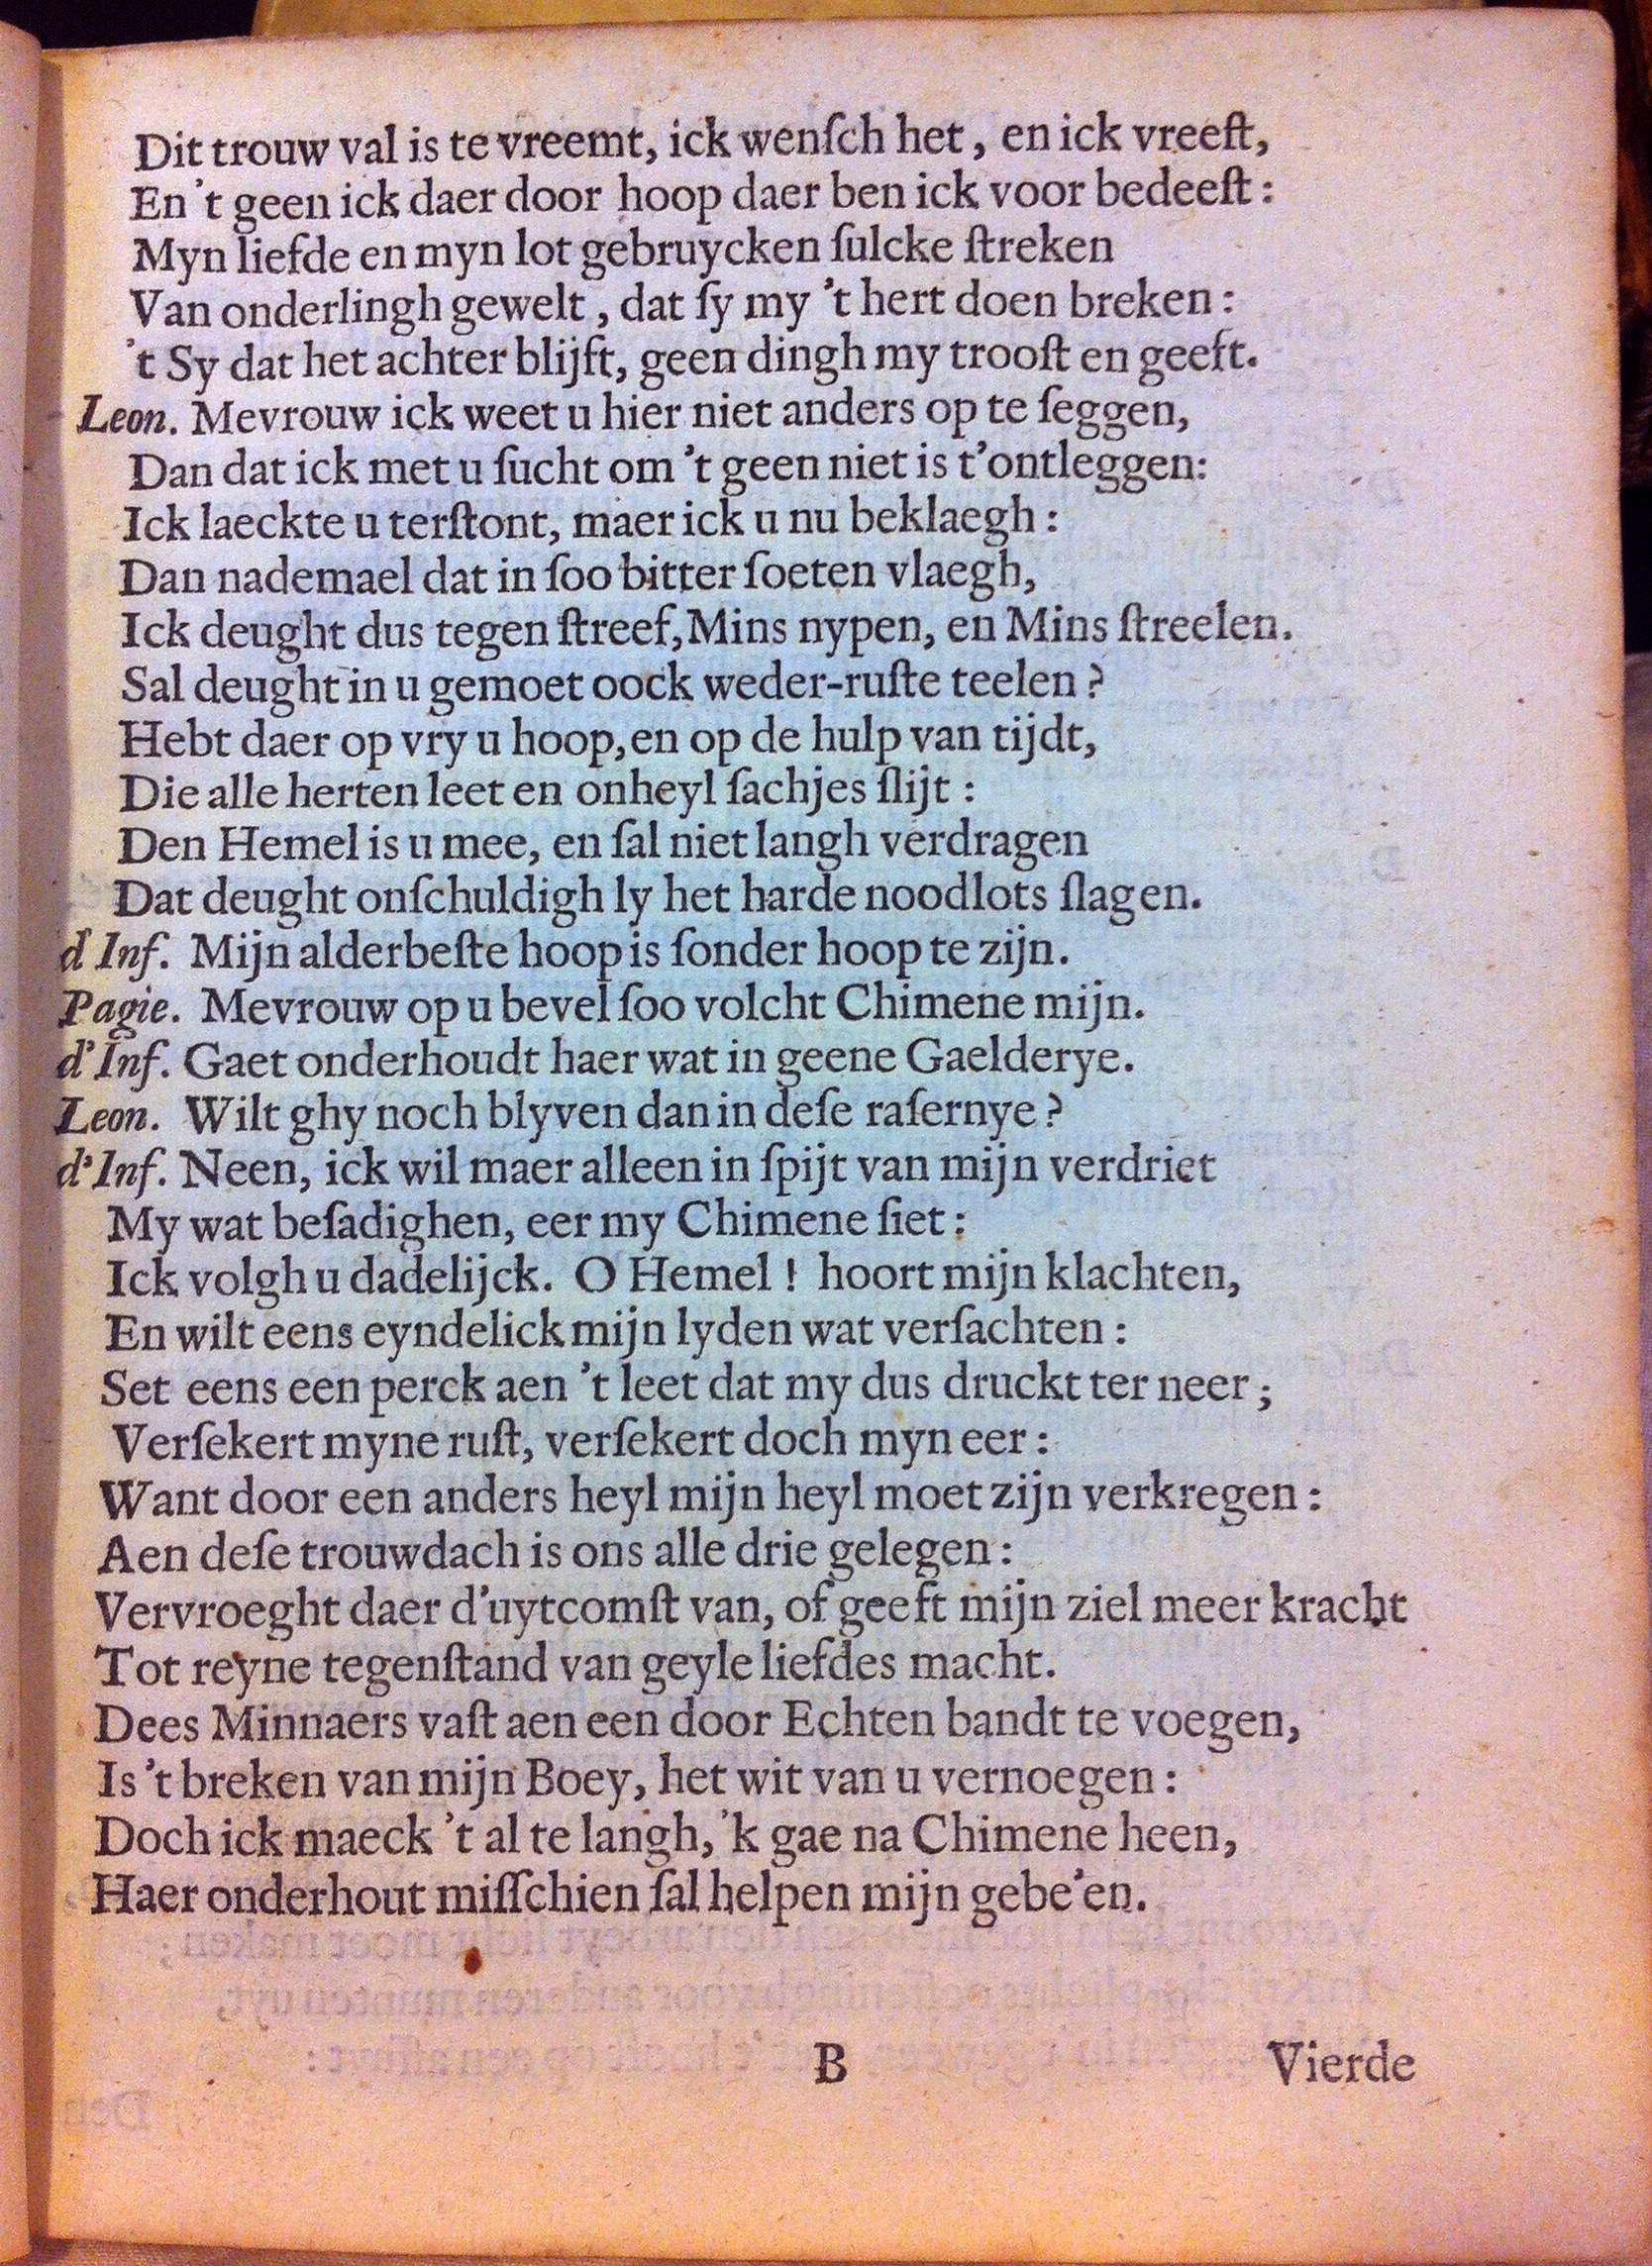 Dit trouw val is te vreemt, ick wenſch het, en ick vreeſt,
En 't geen ick daer door hoop daer ben ick voor bedeeſt:
Myn liefde en myn lot gebruycken ſulcke ſtreken
Van onderlingh gewelt, dat ſy my 't hert doen breken:
't Sy dat het achter blijft, geen dingh my trooſt en geeft.
Leon. Mevrouw ick weet u hier niet anders op te ſeggen,
Dan dat ick met u ſucht om 't geen niet is t'ontleggen:
Ick laeckte u terſtont, maer ick u nu beklaegh:
Dan nademael dat in ſoo bitter ſoeten vlaegh,
Ick deught dus tegen ſtreef, Mins nypen, en Mins ſtreelen.
Sal deught in u gemoet oock weder-ruſte teelen?
Hebt daer op vry u hoop, en op de hulp van tijdt,
Die alle herten leet en onheyl ſachjes ſlijt:
Den Hemel is u mee, en ſal niet langh verdragen
Dat deught onſchuldigh ly het harde noodlots ſlagen.
d'Inf. Mijn alderbeſte hoop is ſonder hoop te zijn.
Pagie. Mevrouw op u bevel ſoo volcht Chimene mijn.
d'Inf. Gaet onderhoudt haer wat in geene Gaelderye.
Leon. Wilt ghy noch blyven dan in deſe raſernye?
d'Inf. Neen, ick wil maer alleen in ſpijt van mijn verdriet
My wat beſadighen, eer my Chimene ſiet:
Ick volgh u dadelijck. O Hemel! hoort mijn klachten,
En wilt eens eyndelick mijn lyden wat verſachten:
Set eens een perck aen 't leet dat my dus druckt ter neer;
Verſekert myne ruſt, verſekert doch myn eer:
Want door een anders heyl mijn heyl moet zijn verkregen:
Aen deſe trouwdach is ons alle drie gelegen:
Vervroeght daer d'uytcomſt van, of geeft mijn ziel meer kracht
Tot reyne tegenſtand van geyle liefdes macht.
Dees Minnaers vaſt aen een door Echten bandt te voegen,
Is 't breken van mijn Boey, het wit van u vernoegen:
Doch ick maeck 't al te langh, 'k gae na Chimene heen,
Haer onderhout miſſchien ſal helpen mijn gebe'en.
B
Vierde